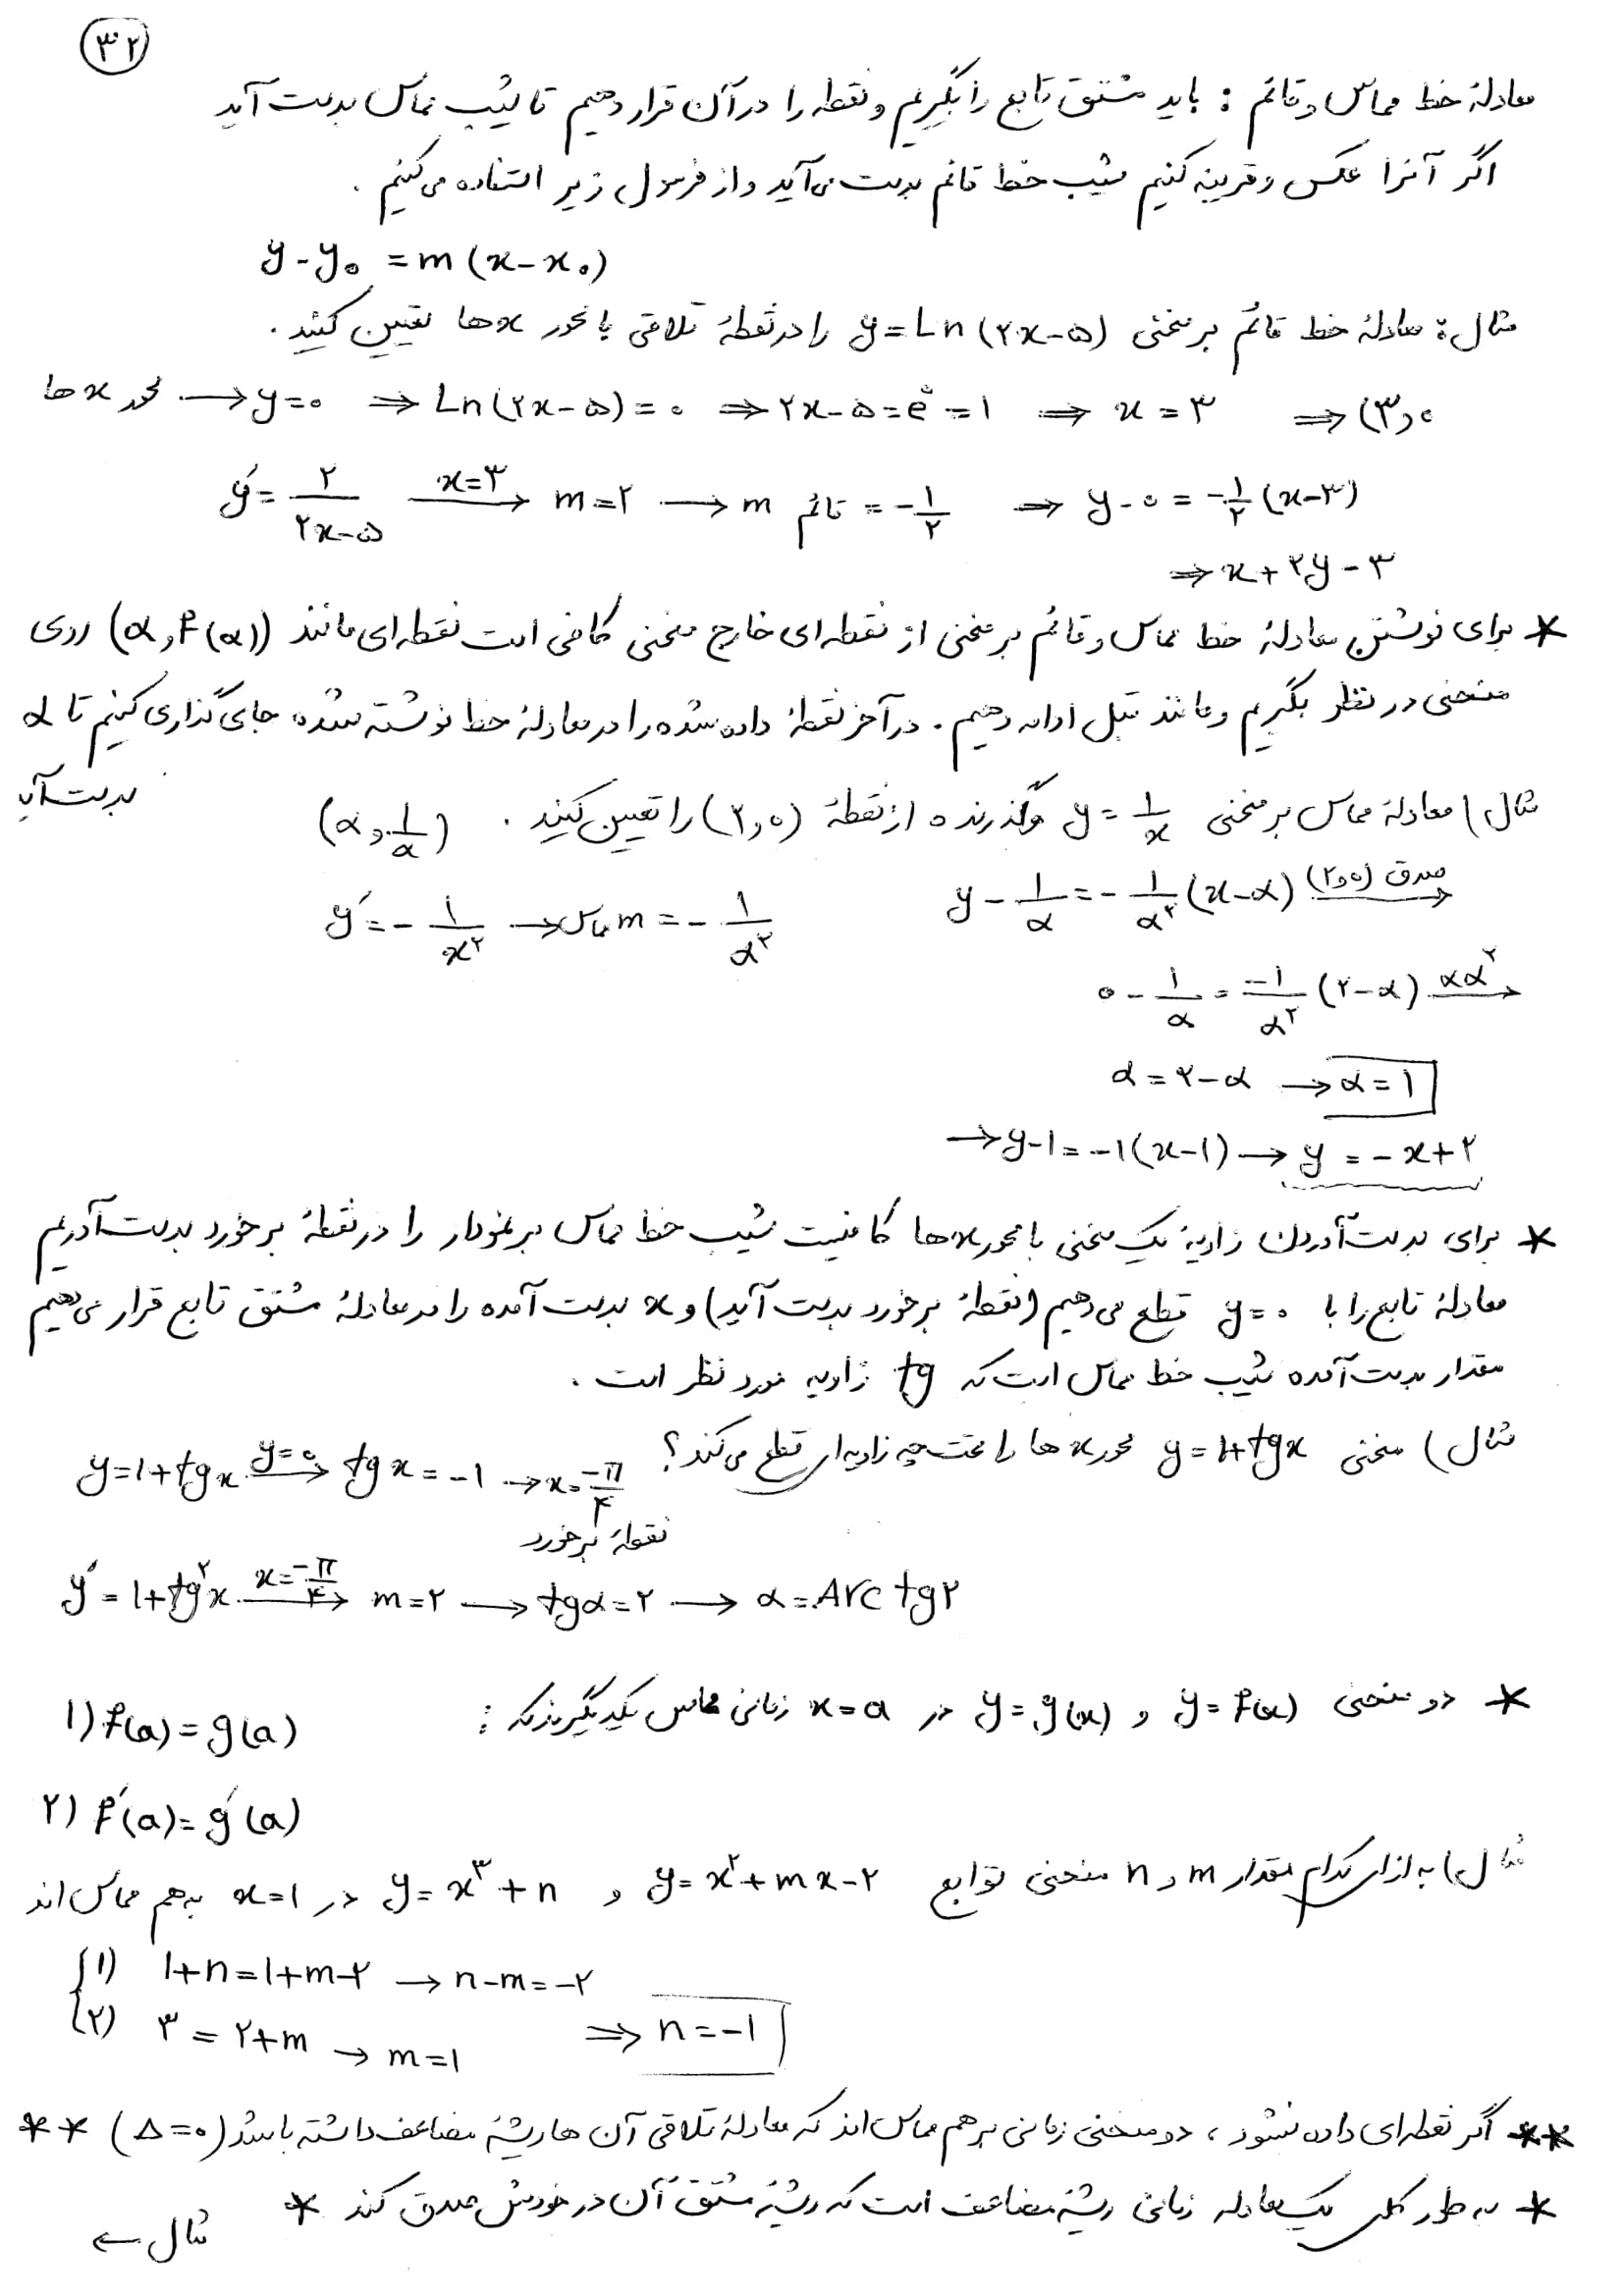 ۳۲
معادلهٔ خط مماس و قائم : باید مشتق تابع را بگیریم و نقطه را در آن قرار دهیم تا شیب مماس بدست آید
اگر آنرا عکس و قرینه کنیم شیب خط قائم بدست می‌آید و از فرمول زیر استفاده می‌کنیم .
y - y₀ = m (x - x₀)
مثال : معادلهٔ خط قائم بر منحنی y = Ln (۲x - ۵) را در نقطهٔ تلاقی با محور x ها تعیین کنید .
محور x ها → y = ۰ ⇒ Ln (۲x - ۵) = ۰ ⇒ ۲x - ۵ = e⁰ = ۱ ⇒ x = ۳ ⇒ (۳,۰
y′ = ۲/(۲x - ۵) —x=۳→ m = ۲ → m قائم = -۱/۲ ⇒ y - ۰ = -۱/۲ (x - ۳)
⇒ x + ۲y - ۳
* برای نوشتن معادلهٔ خط مماس و قائم بر منحنی از نقطه‌ای خارج منحنی کافی است نقطه‌ای مانند (α, f(α)) روی
منحنی در نظر بگیریم و مانند قبل ادامه دهیم . در آخر نقطهٔ داده شده را در معادلهٔ خط نوشته شده جای گذاری کنیم تا α
بدست آید
مثال ) معادلهٔ مماس بر منحنی y = ۱/x و گذرنده از نقطهٔ (۲,۰) را تعیین کنید . (α, ۱/α)
y′ = - ۱/x² → m مماس = - ۱/α²
y - ۱/α = - ۱/α² (x - α) —صدق (۲,۰)→
۰ - ۱/α = -۱/α² (۲ - α) —×α²→
α = ۲ - α → α = ۱
→ y - ۱ = -۱ (x - ۱) → y = - x + ۲
* برای بدست آوردن زاویهٔ یک منحنی با محور x ها کافیست شیب خط مماس بر نمودار را در نقطهٔ برخورد بدست آوریم
معادلهٔ تابع را با y = ۰ قطع می‌دهیم (نقطهٔ برخورد بدست آید) و x بدست آمده را در معادلهٔ مشتق تابع قرار می‌دهیم
مقدار بدست آمده شیب خط مماس است که tg زاویه مورد نظر است .
مثال ) منحنی y = ۱+tgx محور x ها را تحت چه زاویه‌ای قطع می‌کند ؟
y = ۱+tgx —y=۰→ tgx = -۱ → x = -π/۴
نقطهٔ برخورد
y′ = ۱+tg²x —x=-π/۴→ m = ۲ → tgα = ۲ → α = Arc tg۲
* دو منحنی y = f(x) و y = g(x) در x = a زمانی مماس یکدیگرند که :
۱) f(a) = g(a)
۲) f′(a) = g′(a)
مثال ) به ازای کدام مقدار m و n منحنی توابع y = x² + mx - ۲ و y = x³ + n در x = ۱ بهم مماس اند
{ (۱) ۱+n = ۱+m-۲ → n - m = -۲
(۲) ۳ = ۲+m → m = ۱ ⇒ n = -۱
** اگر نقطه‌ای داده نشود ، دو منحنی زمانی بر هم مماس اند که معادلهٔ تلاقی آن ها ریشهٔ مضاعف داشته باشد (Δ = ۰) **
* به طور کلی یک معادله زمانی ریشهٔ مضاعف است که ریشهٔ مشتق آن در خودش صدق کند *
مثال ←